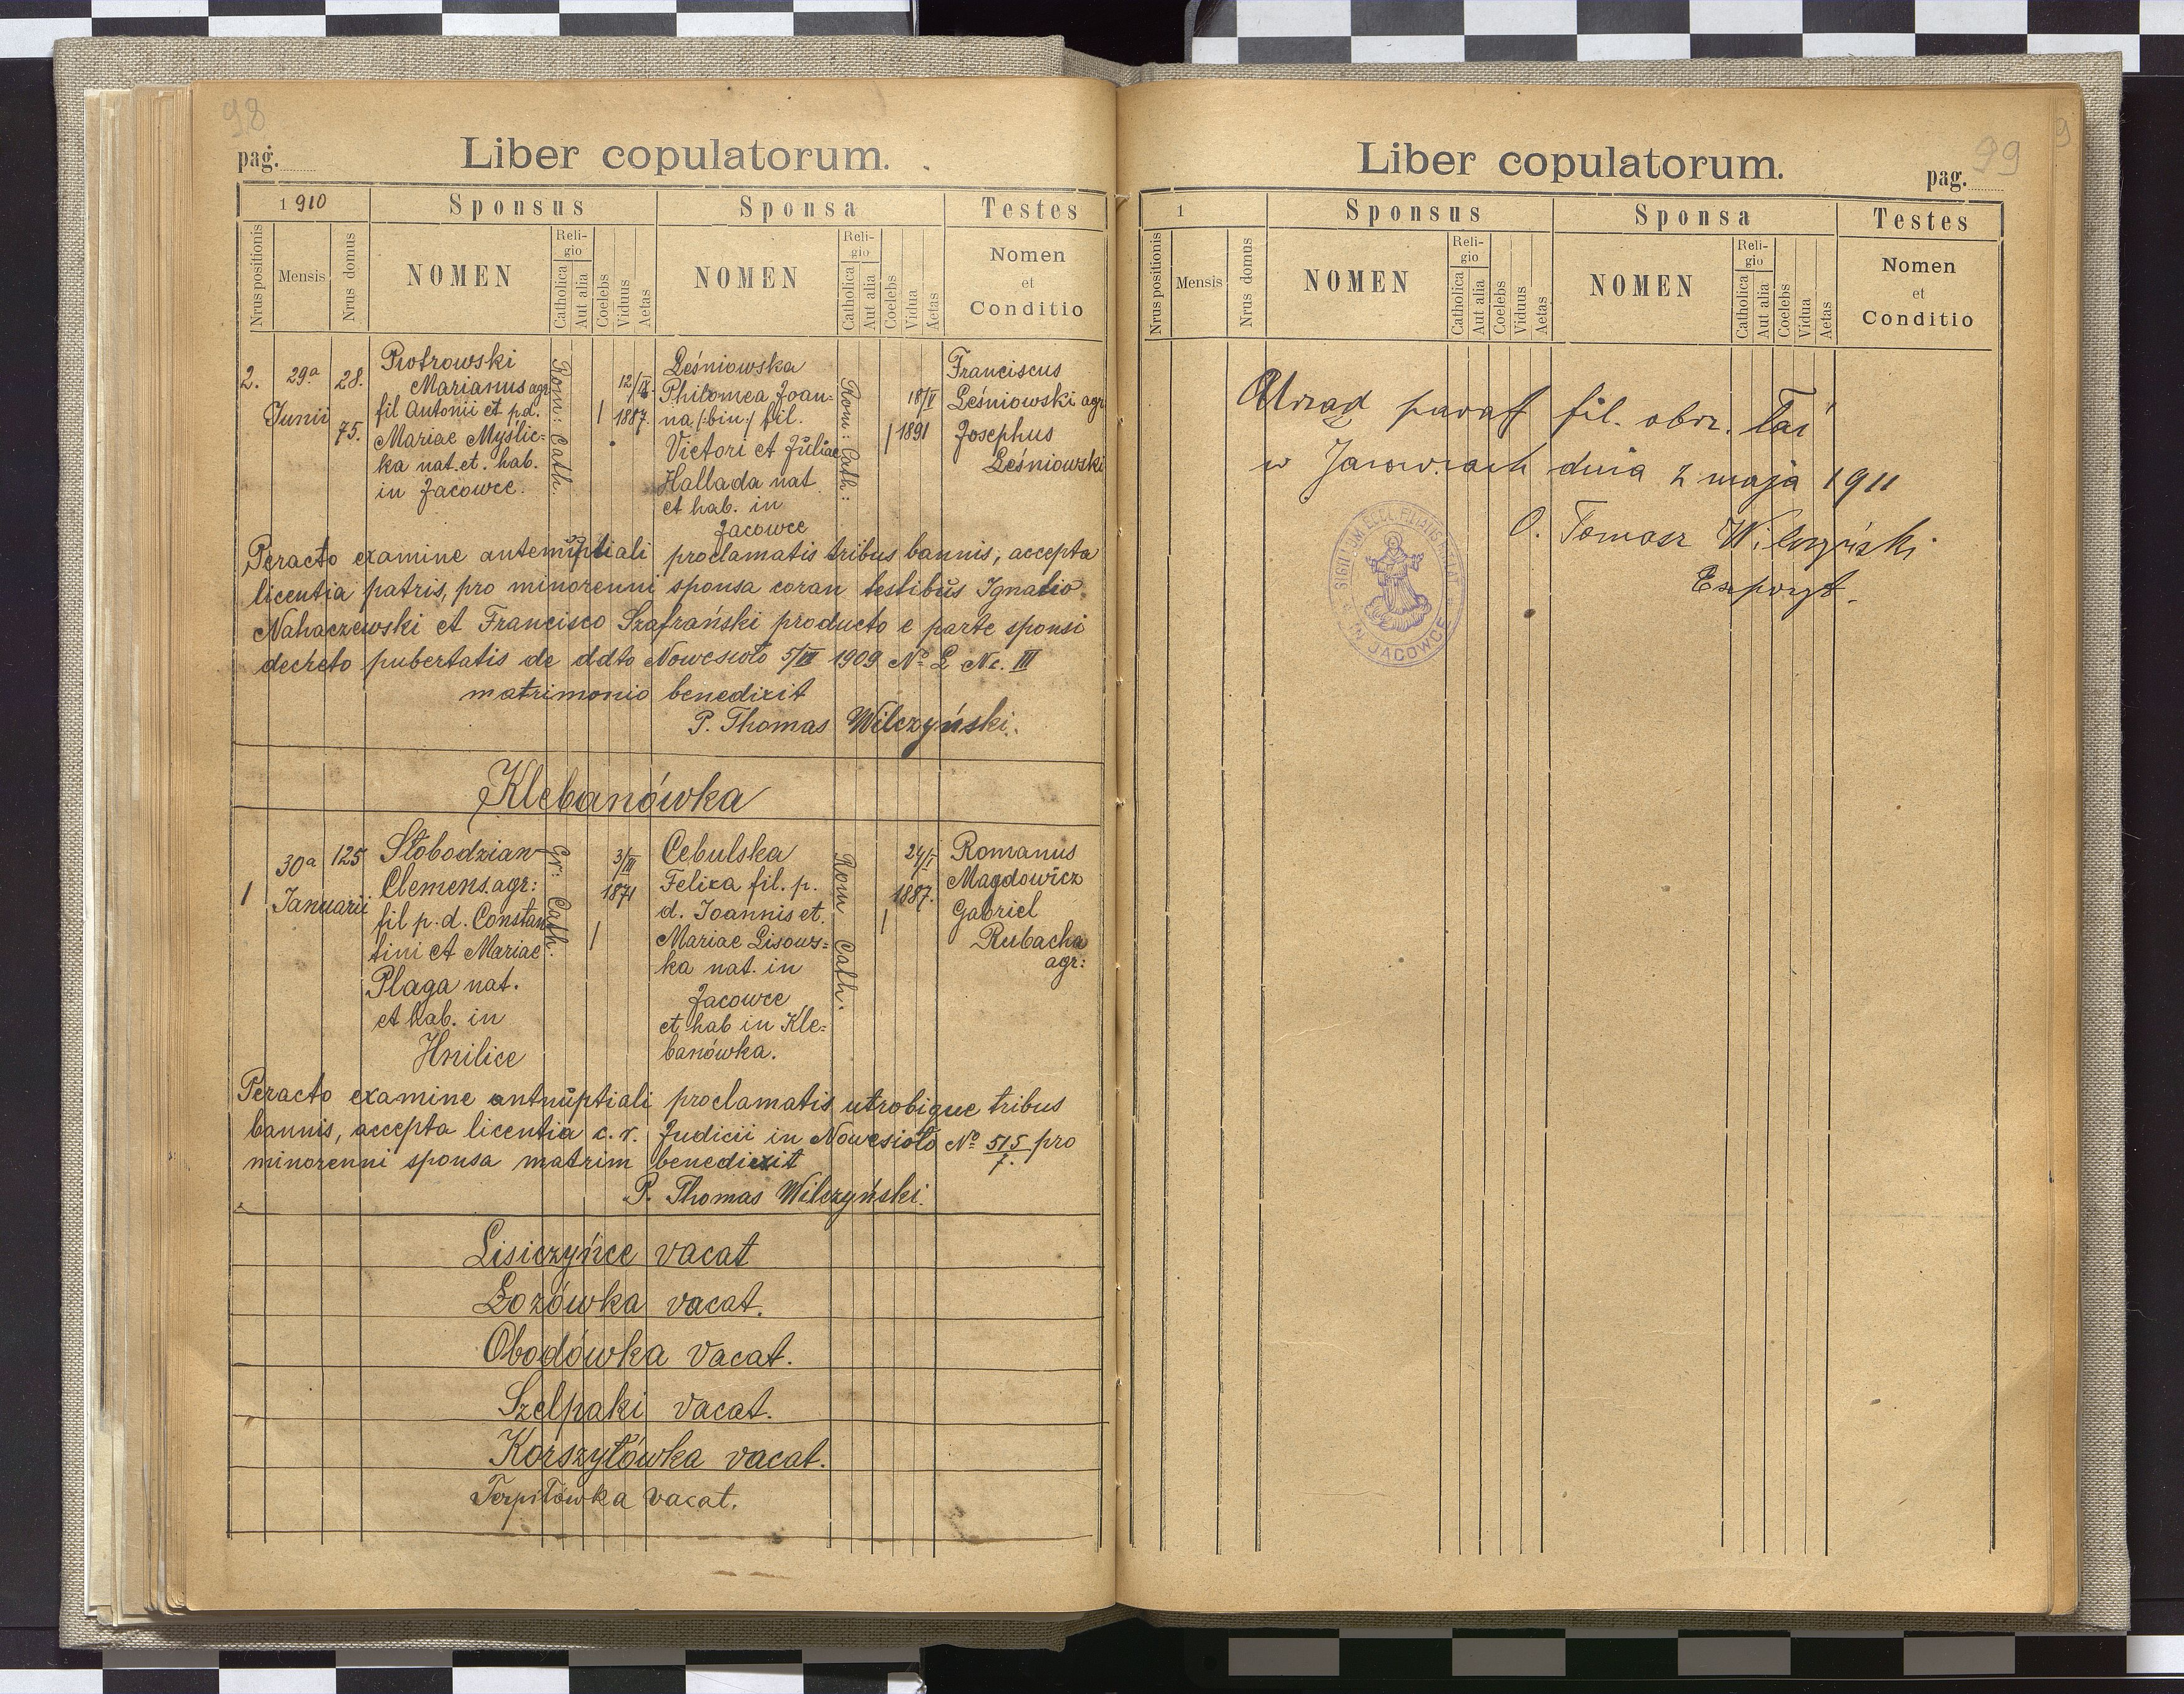 98
pag.
Liber copulatorum.
1910
Sponsus
Sponsa
Testes
Nrus positionis
Mensis
Nrus domus
NOMEN
Religio
Catholica
Aut alia
Coelebs
Viduus
Aetas
NOMEN
Religio
Catholica
Aut alia
Coelebs
Vidua
Aetas
Nomen
et
Conditio
2.
29a
Junii
28.
75.
Piotrowski
Marianus agr
fil Antonii et p.d.
Mariae Myślic=
ka nat. et. hab.
in Jacowce.
Rom: Cath.
1
12/IX
1887.
Leśniowska
Philomea Joan-
na (:bin:) fil.
Victori et Juliae
Hallada nat
et hab. in
Jacowce
Rom: Cath:
1
18/V
1891
Franciscus
Leśniowski agr
Josephus
Leśniowski
Peracto examine antenuptiali proclamatis tribus bannis, accepta
licentia patris, pro minorenni sponsa coran testibus Ignatio
Nahaczewski et Francisco Szafrański producto e parte sponsi
decreto pubertatis de ddto Nowesioło 5/VII 1909 No L Nc. III
matrimonio benedixit
P. Thomas Wilczyński.
Klebanówka
1
30a
Januarii
125
Słobodzian
Clemens. agr:
fil p. d. Constan
tini et Mariae
Plaga nat.
et hab. in
Hnilice
Gr: Cath.
1
3/III
1871
Cebulska
Felixa fil. p.
d. Joannis et.
Mariae Lisows=
ka nat. in
Jacowce
et hab in Kle=
banówka.
Rom Cath.
1
24/I
1887.
Romanus
Magdowicz
Gabriel
Rubacha
agr:
Peracto examine antnuptiali proclamatis utrobique tribus
bannis, accepta licentia c. r. Judicii in Nowesioło No 515/7. pro
minorenni sponsa matrim benedixit
P. Thomas Wilczyński.
Lisiczyńce vacat
Łozówka vacat.
Obodówka vacat.
Szelpaki vacat.
Korszyłówka vacat.
Terpiłówka vacat.
99
Liber copulatorum.
pag.
1
Sponsus
Sponsa
Testes
Nrus positionis
Mensis
Nrus domus
NOMEN
Religio
Catholica
Aut alia
Coelebs
Viduus
Aetas
NOMEN
Religio
Catholica
Aut alia
Coelebs
Vidua
Aetas
Nomen
et
Conditio
Urząd paraf fil. obrz. łać
w Jacowcach dnia 2 maja 1911
O. Tomasz Wilczyński
Expozyt.
IN JACOWCE